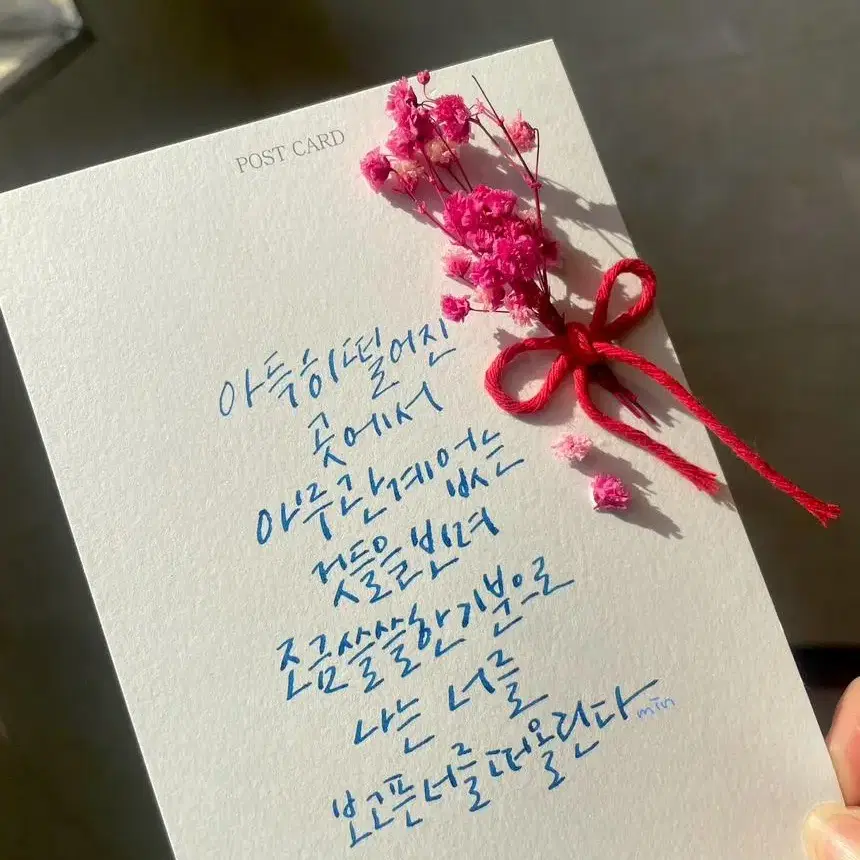 POST CARD
아득히 떨어진
곳에서
아무 관계 없는
것들을 보며
조금 쓸쓸한 기분으로
나는 너를
보고픈 너를 떠올린다
min